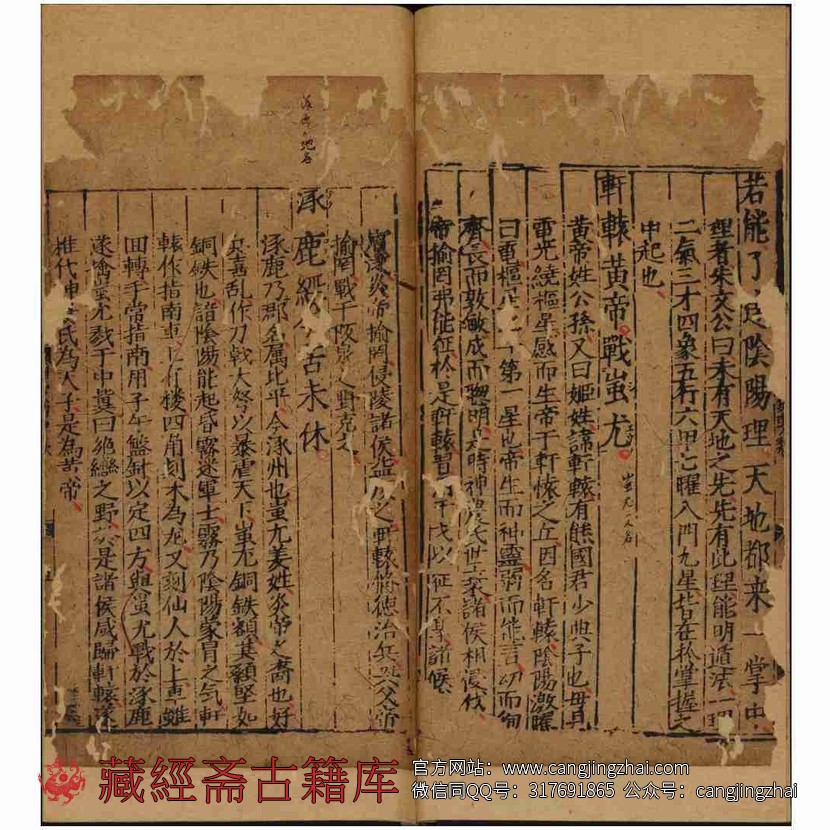 若能了是陰陽理天地都來一掌中
理者朱文公曰未有天地之先先有此理能明遁法一理
二氣三才四象五行六甲七曜八門九星皆在於掌握之
中起也
軒轅黃帝戰蚩尤
蚩尤人名
黃帝姓公孫又曰姬姓諱軒轅有熊國君少典子也母見
電光繞樞星感而生帝于軒轅之丘因名軒轅陰陽激曜
曰電樞 第一星也帝生而神靈弱而能言幼而徇
齊長而敦敏成而聰明是時神農氏世衰諸侯相侵伐
帝榆罔弗能征於是軒轅習用干戈以征不享諸侯
炎帝榆罔侵陵諸侯益 之軒轅脩德治兵與炎帝
榆罔戰于阪泉之野克之
涿鹿地名
涿鹿經今苦未休
涿鹿乃郡名属北平今涿州也蚩尤姜姓炎帝之裔也好
兵喜乱作刀戟大弩以暴虐天下蚩尤銅鉄額其額堅如
銅鉄也譜陰陽能起昏霧迷軍士霧乃陰陽蒙冒之气軒
轅作指南車 楼四角刻木為龙又刻仙人於上車雖
回轉手常指南用子午盤針以定四方與蚩尤戰於涿鹿
遂擒蚩尤戮于中冀曰絶轡之野於是諸侯咸歸軒轅遂
推代神农氏為天子是為黃帝
藏經斋古籍库
官方网站：www.cangjingzhai.com
微信同QQ号：317691865 公众号：cangjingzhai